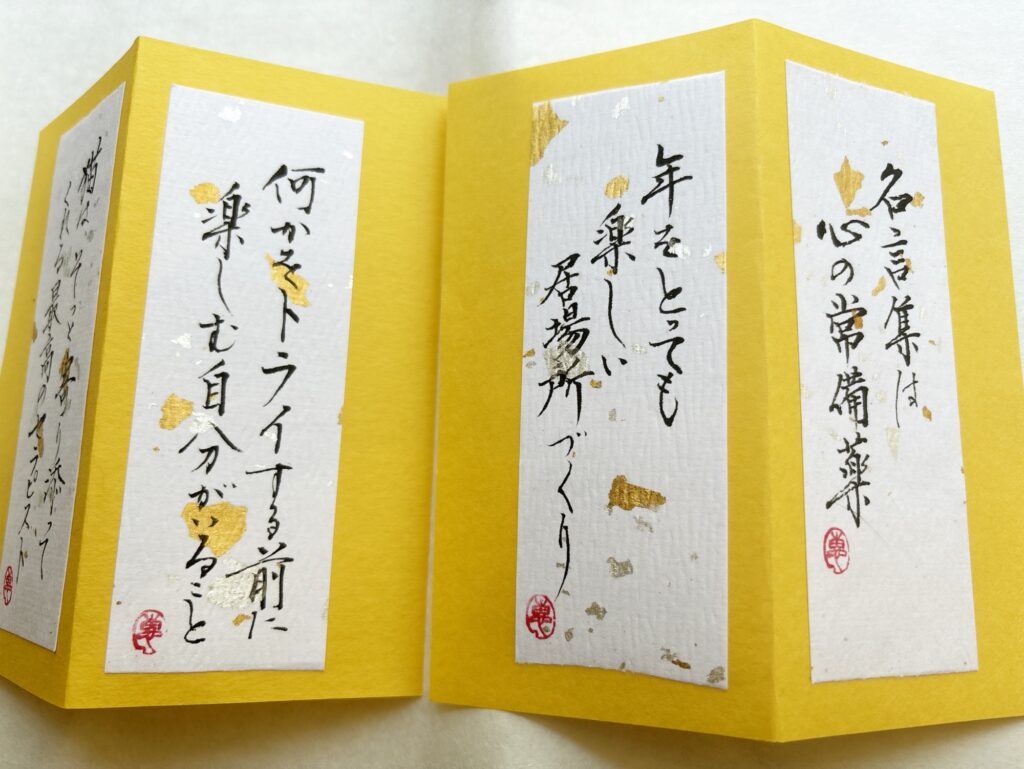 名言集は
心の常備薬
年をとっても
楽しい
居場所づくり
何かをトライする前に
楽しむ自分がいること
猫は そっと寄り添って
くれる最高の